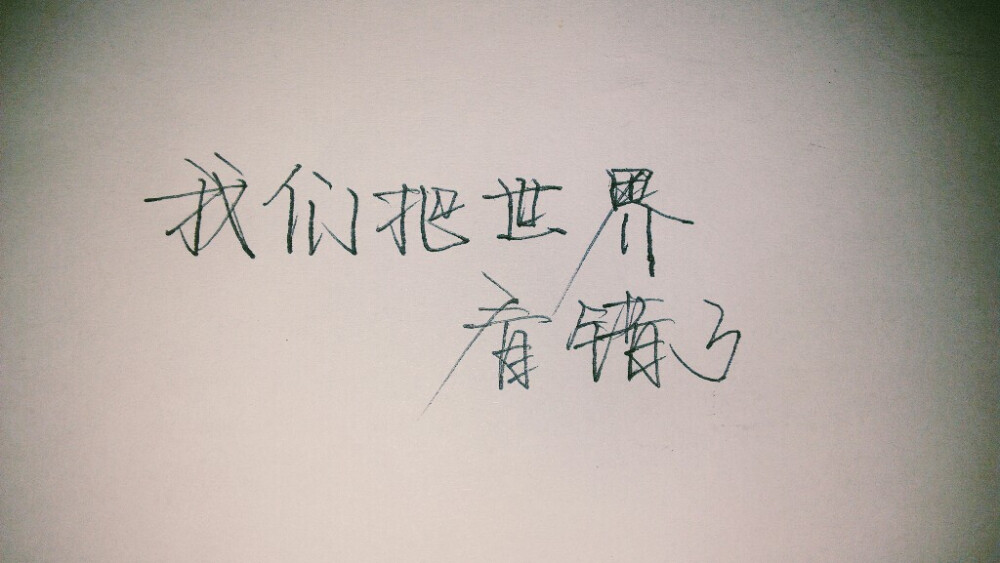 我们把世界
看错了